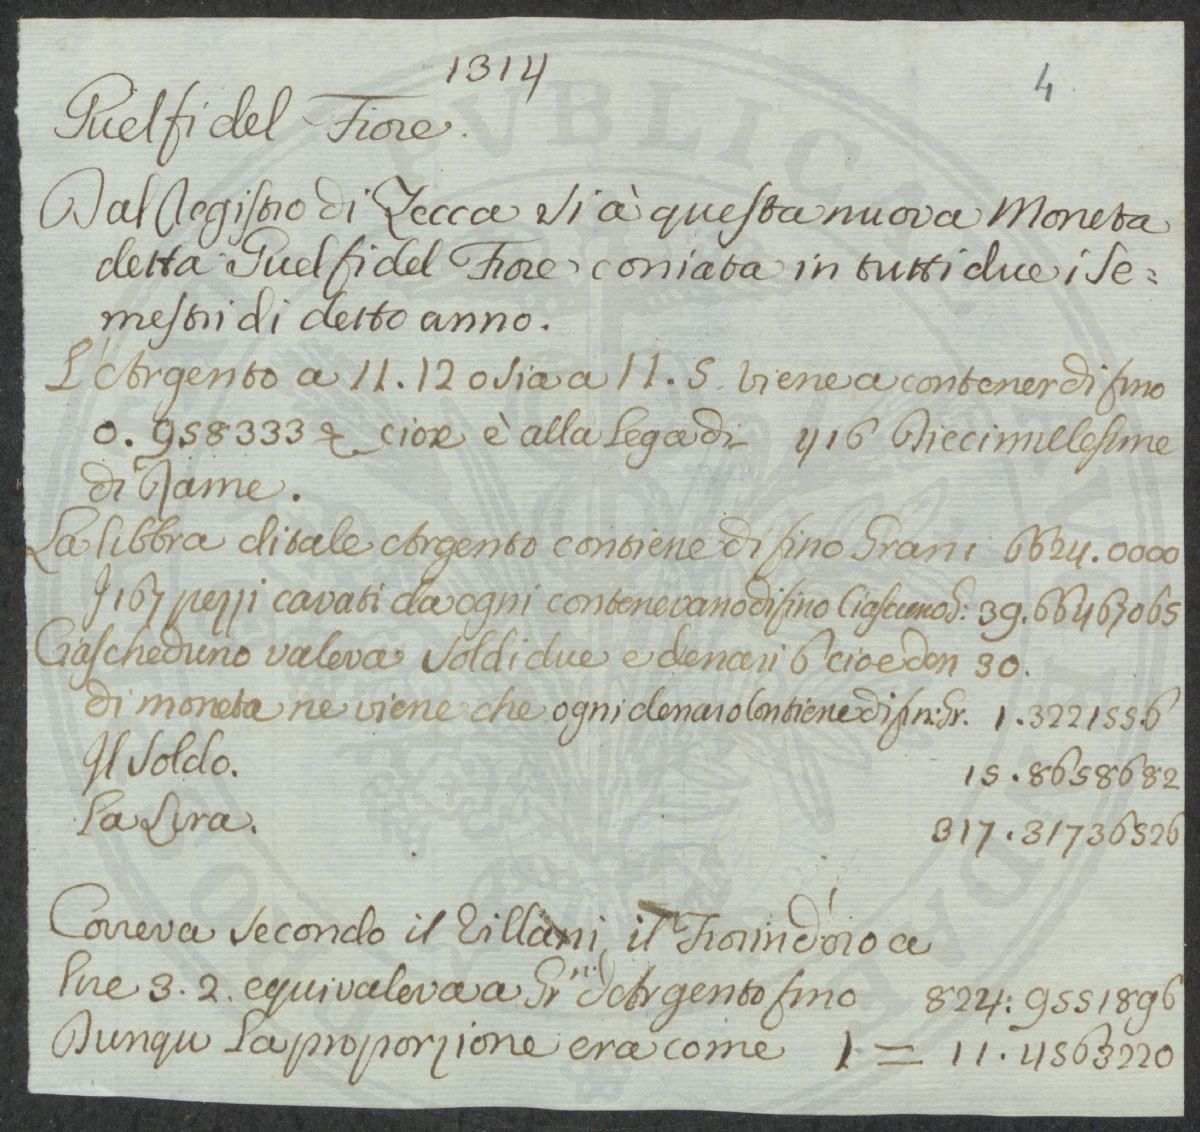 1314
4
Guelfi del Fiore.
Dal Registro di Zecca si à questa nuova Moneta
detta Guelfi del Fiore coniata in tutti due i Se=
mestri di detto anno.
L'Argento a 11.12 o sia a 11.5 viene a contener di fino
0.958333 & cioe è alla Lega di 416 Diecimillesime
di Rame.
La libbra di tale Argento contiene di fino Grani 6624.0000
I 167 pezzi cavati da ogni contenevano di fino Ciascuno G: 39.66467065
Ciascheduno valeva Soldi due e denari 6 cioe den 30.
di moneta ne viene che ogni denaro Contiene di fin: Gr. 1.3221556
Il Soldo. 15.8658682
La Lira. 317.31736526
PUBLICA
Correva secondo il Villani il Fiorin d'oro a
lire 3.2. equivaleva a Grni d'Argento fino 824.9551896
Dunqu La proporzione era come 1 = 11.4563220